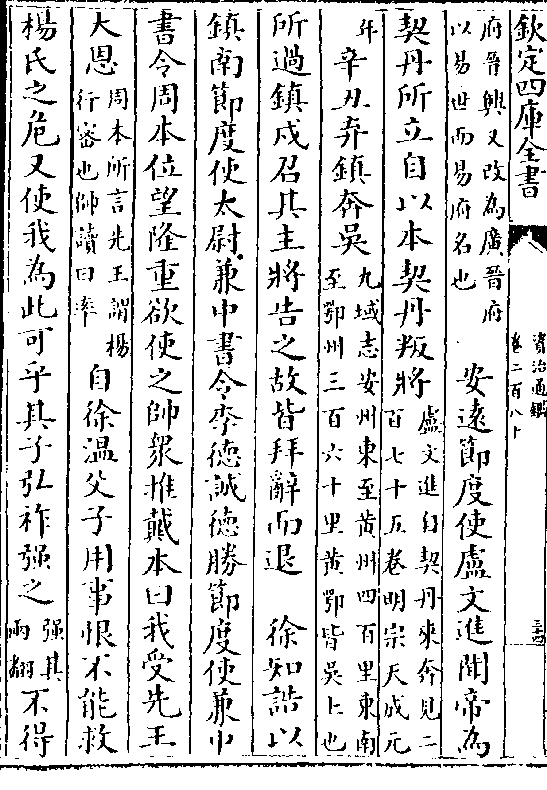 欽定四庫全書
資治通鑑
卷二百八十
三十四
府晉興又改為廣晉府
以易世而易府名也
安遠節度使盧文進聞帝為
契丹所立自以本契丹叛將
盧文進自契丹來奔見二
百七十五卷明宗天成元
年
辛丑弃鎮奔吳
九域志安州東至黄州四百里東南
至鄂州三百六十里黄鄂皆吳土也
所過鎮戍召其主將告之故皆拜辭而退 徐知誥以
鎮南節度使太尉兼中書令李德誠德勝節度使兼中
書令周本位望隆重欲使之帥衆推戴本曰我受先王
大恩
周本所言先王謂楊
行密也帥讀曰率
自徐温父子用事恨不能救
楊氏之危又使我為此可乎其子弘祚强之
强其
兩翻
不得